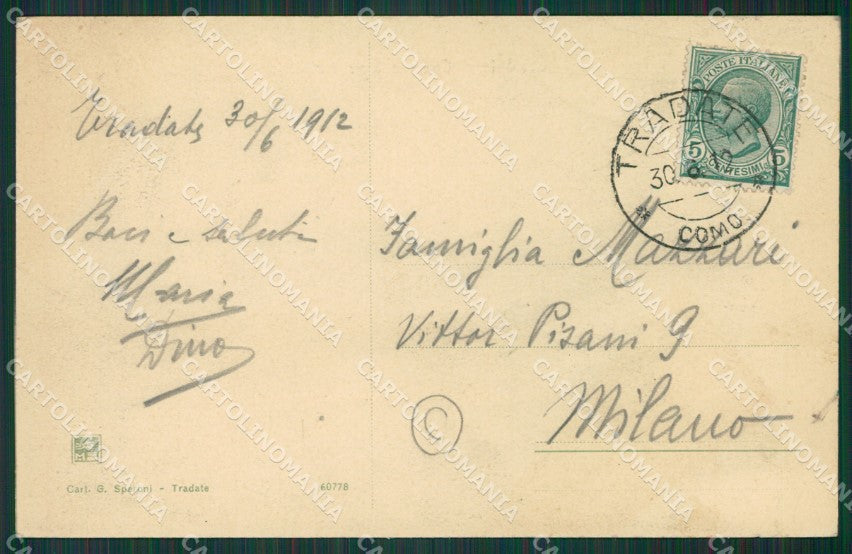 Tradate 30/6 1912
Baci e saluti
Maria
Dino
Cart. G. Speroni - Tradate
60778
POSTE ITALIANE
5 CENTESIMI 5
TRADATE
30. 6. 12
COMO
Famiglia Mazzari
Vittor Pisani 9
Milano
C
CARTOLINOMANIA